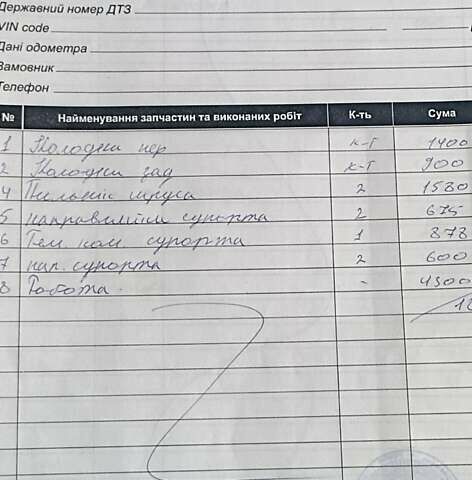 Державний номер ДТЗ
VIN code
Дані одометра
Замовник
Телефон
№ Найменування запчастин та виконаних робіт К-ть Сума
1 Колодки пер к-т 1400
2 Колодки зад к-т 900
4 Пильник шруса 2 1580
5 направляюси супорта 2 675
6 Рем. ком. супорта 1 878
7 нап. супорта 2 600
8 Робота - 4300